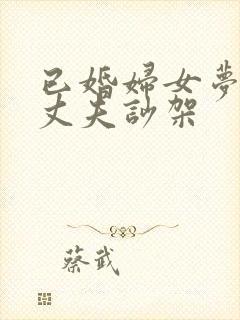 已婚婦女夢
丈夫訬架
蔡武